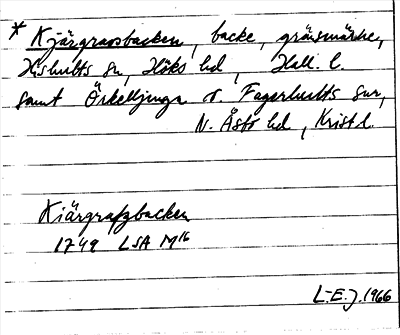 * Kjärgravsbacken, backe, gränsmärke,
Hishults sn, Höks hd, Hall. l.
samt Örkelljunga o. Fagerhults snr,
N. Åsbo hd, Krist l.
Kiärgrafzbacken
1749 LSA M16
L-E.J. 1966